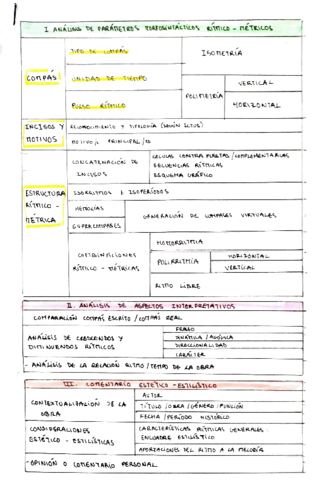 I. ANÁLISIS DE PARÁMETROS MORFOSINTÁCTICOS RÍTMICO - MÉTRICOS
COMPÁS
TIPO DE COMPÁS
ISOMETRÍA
UNIDAD DE TIEMPO
POLIMETRÍA
VERTICAL
PULSO RÍTMICO
HORIZONTAL
INCISOS Y MOTIVOS
RECONOCIMIENTO Y TIPOLOGÍA (SEGÚN ICTUS)
MOTIVO/S PRINCIPAL/ES
ESTRUCTURA RÍTMICO - MÉTRICA
CONCATENACIÓN DE INCISOS
CÉLULAS CONTRAPUESTAS / COMPLEMENTARIAS
SECUENCIAS RÍTMICAS
ESQUEMA GRÁFICO
ISORRITMOS E ISOPERÍODOS
HEMIOLIAS
SUPERCOMPASES
GENERACIÓN DE COMPASES VIRTUALES
COMBINACIONES RÍTMICO - MÉTRICAS
HOMORRITMIA
POLIRRITMIA
HORIZONTAL
VERTICAL
RITMO LIBRE
II. ANÁLISIS DE ASPECTOS INTERPRETATIVOS
COMPARACIÓN COMPÁS ESCRITO / COMPÁS REAL
ANÁLISIS DE CRECIENDOS Y DIMINUENDOS RÍTMICOS
FRASEO
DINÁMICA / AGÓGICA
DIRECCIONALIDAD
CARÁCTER
- ANÁLISIS DE LA RELACIÓN RITMO / TEMPO DE LA OBRA
III. COMENTARIO ESTÉTICO - ESTILÍSTICO
CONTEXTUALIZACIÓN DE LA OBRA
AUTOR
TÍTULO / OBRA / GÉNERO - FUNCIÓN
FECHA / PERÍODO HISTÓRICO
CONSIDERACIONES ESTÉTICO - ESTILÍSTICAS
CARACTERÍSTICAS RÍTMICAS GENERALES
ENCUADRE ESTILÍSTICO
APORTACIONES DEL RITMO A LA MELODÍA
- OPINIÓN O COMENTARIO PERSONAL